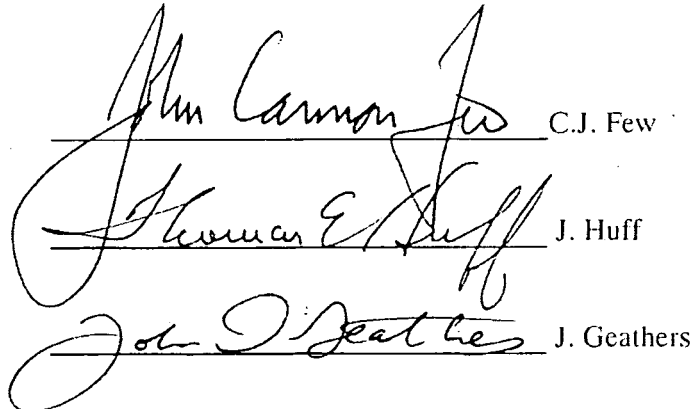 John Cannon Few C.J. Few
Thomas E Huff J. Huff
John D Geathers J. Geathers